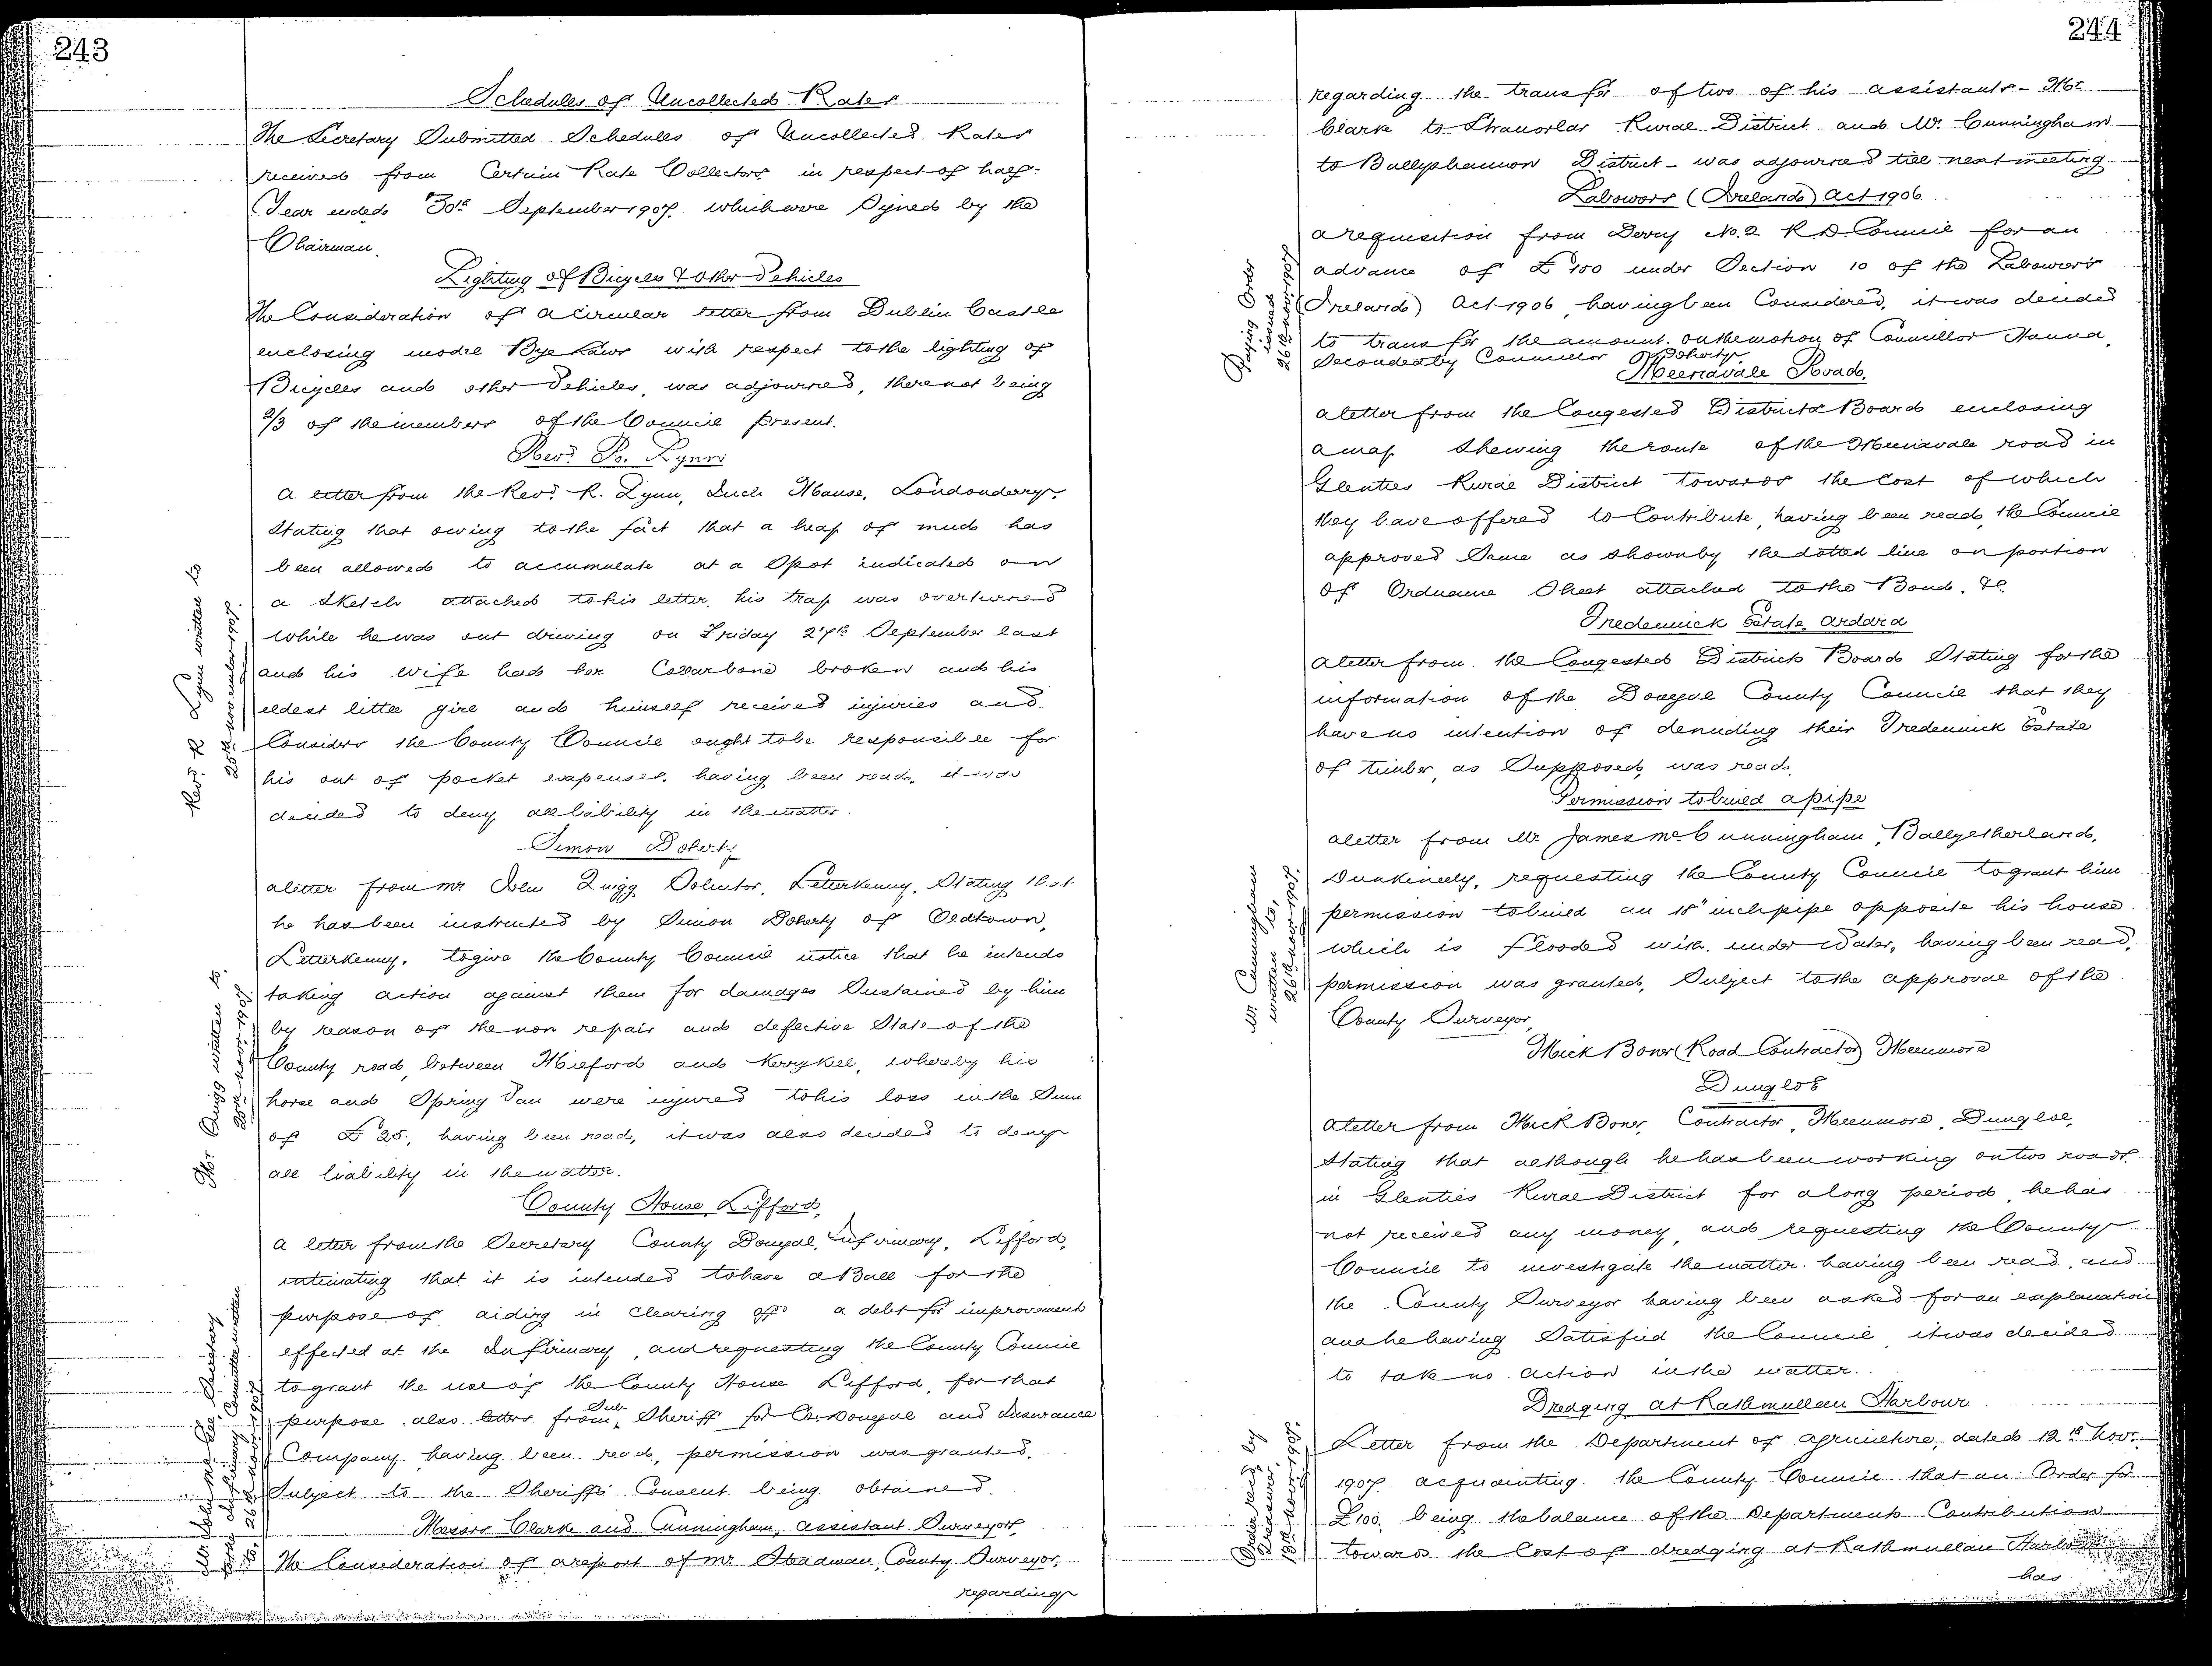 243
Schedules of Uncollected Rates
The Secretary Submitted Schedules of Uncollected Rates
received from Certain Rate Collectors in respect of half-
Year ended 30th September 1907 which were Signed by the
Chairman.
Lighting of Bicycles & other Vehicles
The Consideration of a circular letter from Dublin Castle
enclosing model Bye Laws with respect to the lighting of
Bicycles and other Vehicles, was adjourned, there not being
2/3 of the members of the Council present.
Revd. R. Lynn
Revd. R Lynn written to
25th November 1907.
A letter from the Revd. R. Lynn, Inch Manse, Londonderry.
Stating that owing to the fact that a heap of mud has
been allowed to accumulate at a Spot indicated on
a Sketch attached to his letter, his trap was overturned
while he was out driving on Friday 27th September last
and his wife had her Collarbone broken and his
eldest little girl and himself received injuries and
Considers the County Council ought to be responsible for
his out of pocket expenses, having been read, it was
decided to deny all liability in the matter.
Simon Doherty
Mr Quigg written to.
25th Novr. 1907.
A letter from Mr John Quigg Solicitor, Letterkenny, Stating that
he has been instructed by Simon Doherty of Oldtown,
Letterkenny, to give the County Council notice that he intends
taking action against them for damages Sustained by him
by reason of the non repair and defective State of the
County road, between Milford and Kerrykeel, whereby his
horse and Spring Van were injured to his loss in the Sum
of £25, having been read, it was also decided to deny
all liability in the matter.
County House Lifford,
Secretary
Infirmary Committee written
to, 26th Novr. 1907
A letter from the Secretary County Donegal, Infirmary, Lifford,
intimating that it is intended to have a Ball for the
purpose of aiding in clearing off a debt for improvement
effected at the Infirmary, and requesting the County Council
to grant the use of the County House Lifford, for that
purpose, also letters from Sub. Sheriff for Co. Donegal and Insurance
Company having been read, permission was granted,
Subject to the Sheriff's Consent being obtained.
Messrs Clark and Cunningham, Assistant Surveyors,
The Consideration of a report of Mr Steadman, County Surveyor,
regarding
244
regarding the transfer of two of his assistants - Mr.
Clark to Stranorlar Rural District and Mr. Cunningham
to Ballyshannon District - was adjourned till next meeting
Labourers (Ireland) Act 1906
Paying Order
issued
26th Novr. 1907
A requisition from Derry No. 2 R.D. Council for an
advance of £100 under Section 10 of the Labourers
(Ireland) Act 1906, having been Considered, it was decided
to transfer the amount. On the motion of Councillor Hanna,
Seconded by Councillor O'Doherty.
Meenavale Road.
A letter from the Congested Districts Board enclosing
a map Shewing the route of the Meenavale road in
Glenties Rural District towards the Cost of which
they have offered to Contribute, having been read, the Council
approved Same as shown by the dotted line on portion
of Ordnance Sheet attached to the Bond. &c.
Tredennick Estate, Ardara
A letter from the Congested Districts Board Stating for the
information of the Donegal County Council that they
have no intention of denuding their Tredennick Estate
of timber, as Supposed, was read.
Permission to build a pipe
Mr. Cunningham
written to,
26th Novr. 1907.
A letter from Mr. James McCunningham, Ballyetherland,
Dunkineely, requesting the County Council to grant him
permission to build an 18" inch pipe opposite his house
which is flooded with under Water, having been read,
permission was granted, Subject to the approval of the
County Surveyor,
Mick Boner (Road Contractor) Meenmore
Dungloe
A letter from Mick Boner, Contractor, Meenmore, Dungloe,
Stating that although he has been working on two roads
in Glenties Rural District for a long period, he has
not received any money, and requesting the County
Council to investigate the matter having been read, and
the County Surveyor having been asked for an explanation
and he having Satisfied the Council, it was decided
to take no action in the matter.
Dredging at Rathmullan Harbour
Order recd. by
Treasurer,
15th Novr. 1907.
Letter from the Department of Agriculture, dated 12th Novr.
1907 acquainting the County Council that an Order for
£100, being the balance of the Departments Contribution
towards the Cost of dredging at Rathmullan Harbour
has